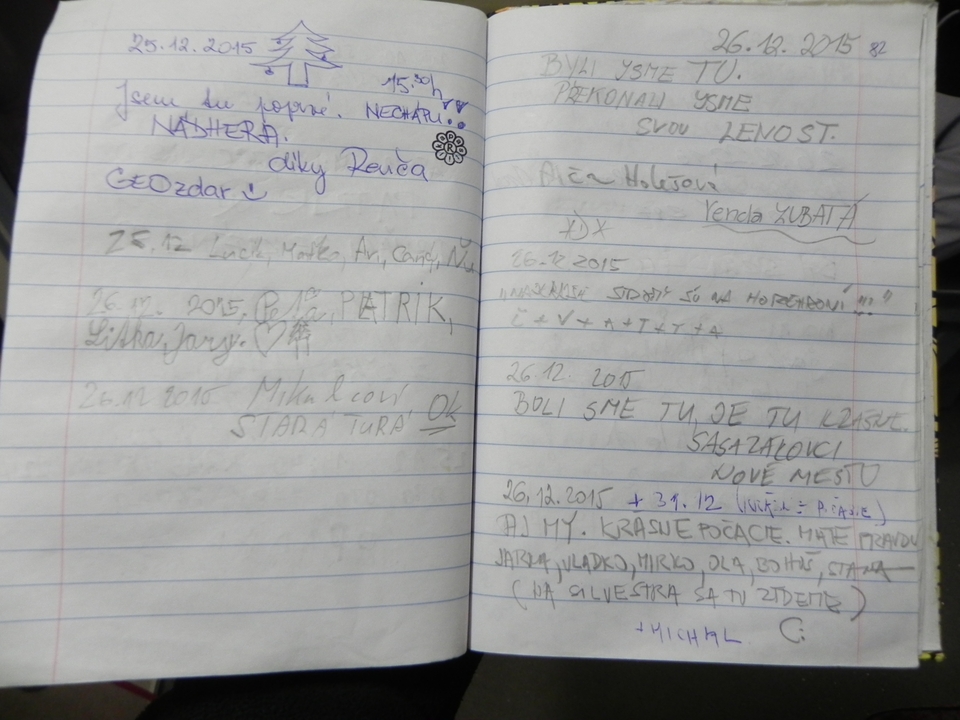 25.12.2015
15.30h
Jsem tu poprvé. NECHÁPU!!
NÁDHERA.
díky Renča
GEOzdar
25.12 Lucik, Matko, An, Candy,
26.12. 2015, Peťa, PETRÍK,
Lišna, Jary.
26.12 2015 Mikulcoví
STARÁ TURÁ Ok
26.12. 2015 82
BYLI JSME TU.
PŘEKONALI JSME
SVOU LENOST.
Holešová
Yenda ZUBATÁ
26.12 2015
SÚ NA HOREHRONÍ !!!"
Ľ + V + A + T + T + A
26.12. 2015
BOLI SME TU, JE TU KRÁSNE.
SASAZALOVCI
NOVÉ MESTO
26.12.2015 + 31.12
AJ MY. KRÁSNE POČASIE. MÁTE PRAVDU
JARKA, VLADKO, MIRKO, OLA, BOHUŠ, STANA
(NA SILVESTRA SA TU ZÍDEME)
+ MICHAL C: